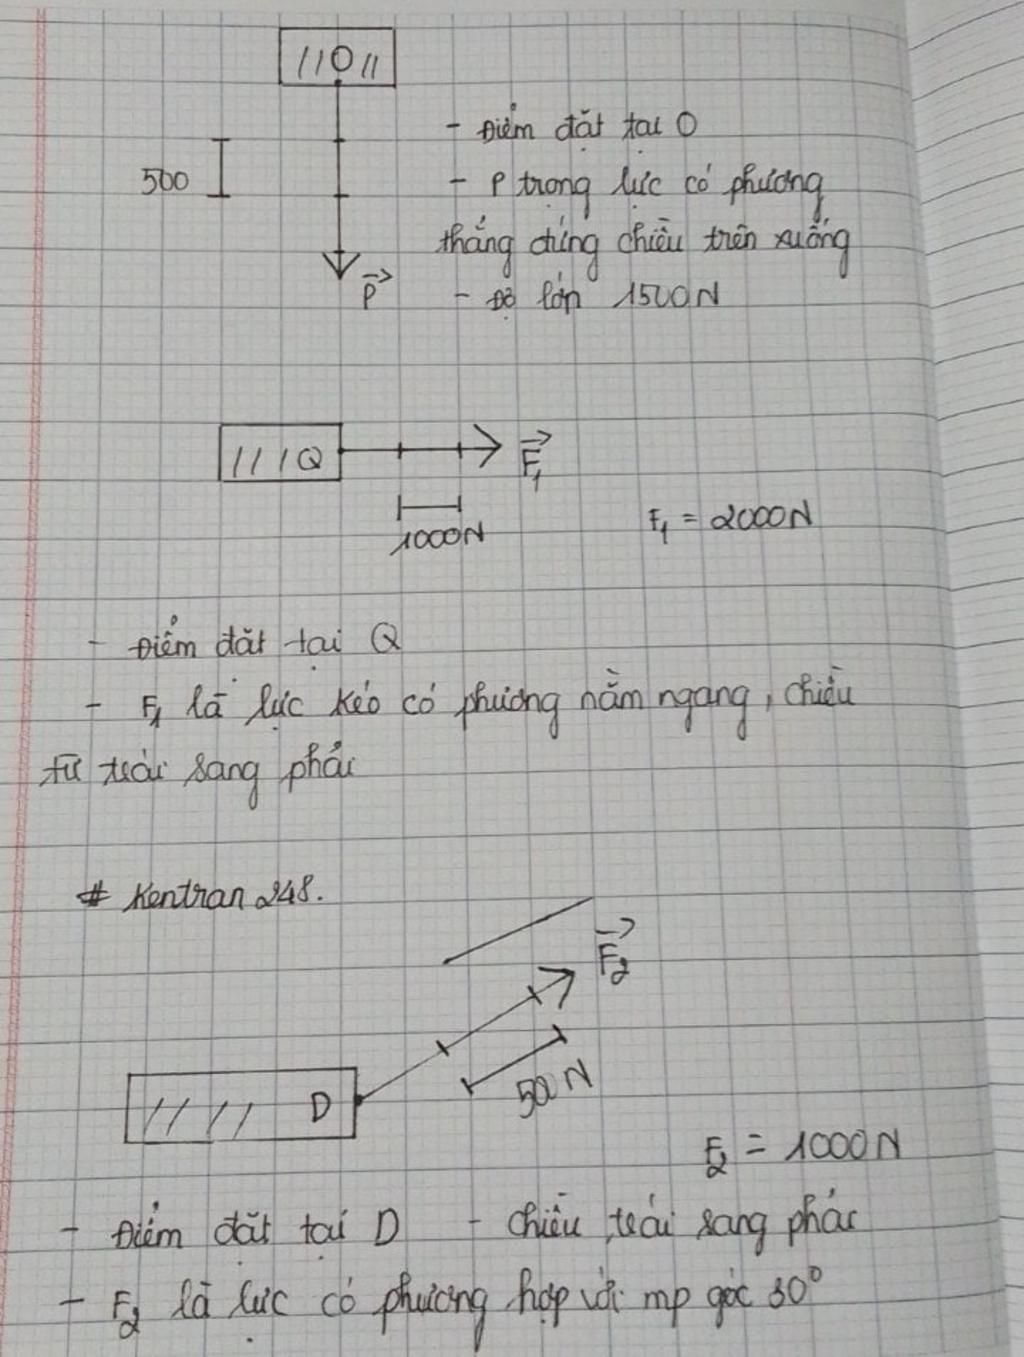 O
- Điểm đặt tại O
500
- P trọng lực có phương
thẳng đứng chiều trên xuống
P
- Độ lớn 1500N
Q
F₁
1000N
F₁ = 2000N
- Điểm đặt tại Q
- F₁ là lực kéo có phương nằm ngang, chiều
từ trái sang phải
# Kentran 248.
F₂
500N
D
F₂ = 1000N
- Điểm đặt tại D - chiều trái sang phải
- F₂ là lực có phương hợp với mp góc 30°